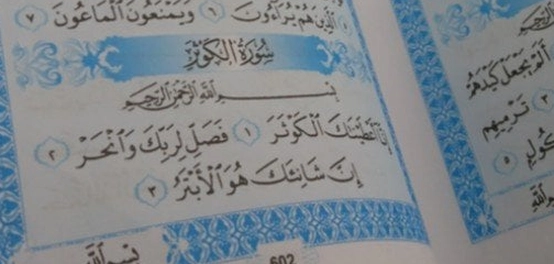 الَّذِينَ هُمْ يُرَآءُونَ ٦ وَيَمْنَعُونَ الْمَاعُونَ ٧
سُورَةُ الْكَوْثَرِ
بِسْمِ اللَّهِ الرَّحْمَنِ الرَّحِيمِ
إِنَّا أَعْطَيْنَكَ الْكَوْثَرَ ١ فَصَلِّ لِرَبِّكَ وَانْحَرْ ٢
إِنَّ شَانِئَكَ هُوَ الْأَبْتَرُ ٣
بِسْمِ اللَّهِ
602
أَلَمْ يَجْعَلْ كَيْدَهُمْ
تَرْمِيهِم